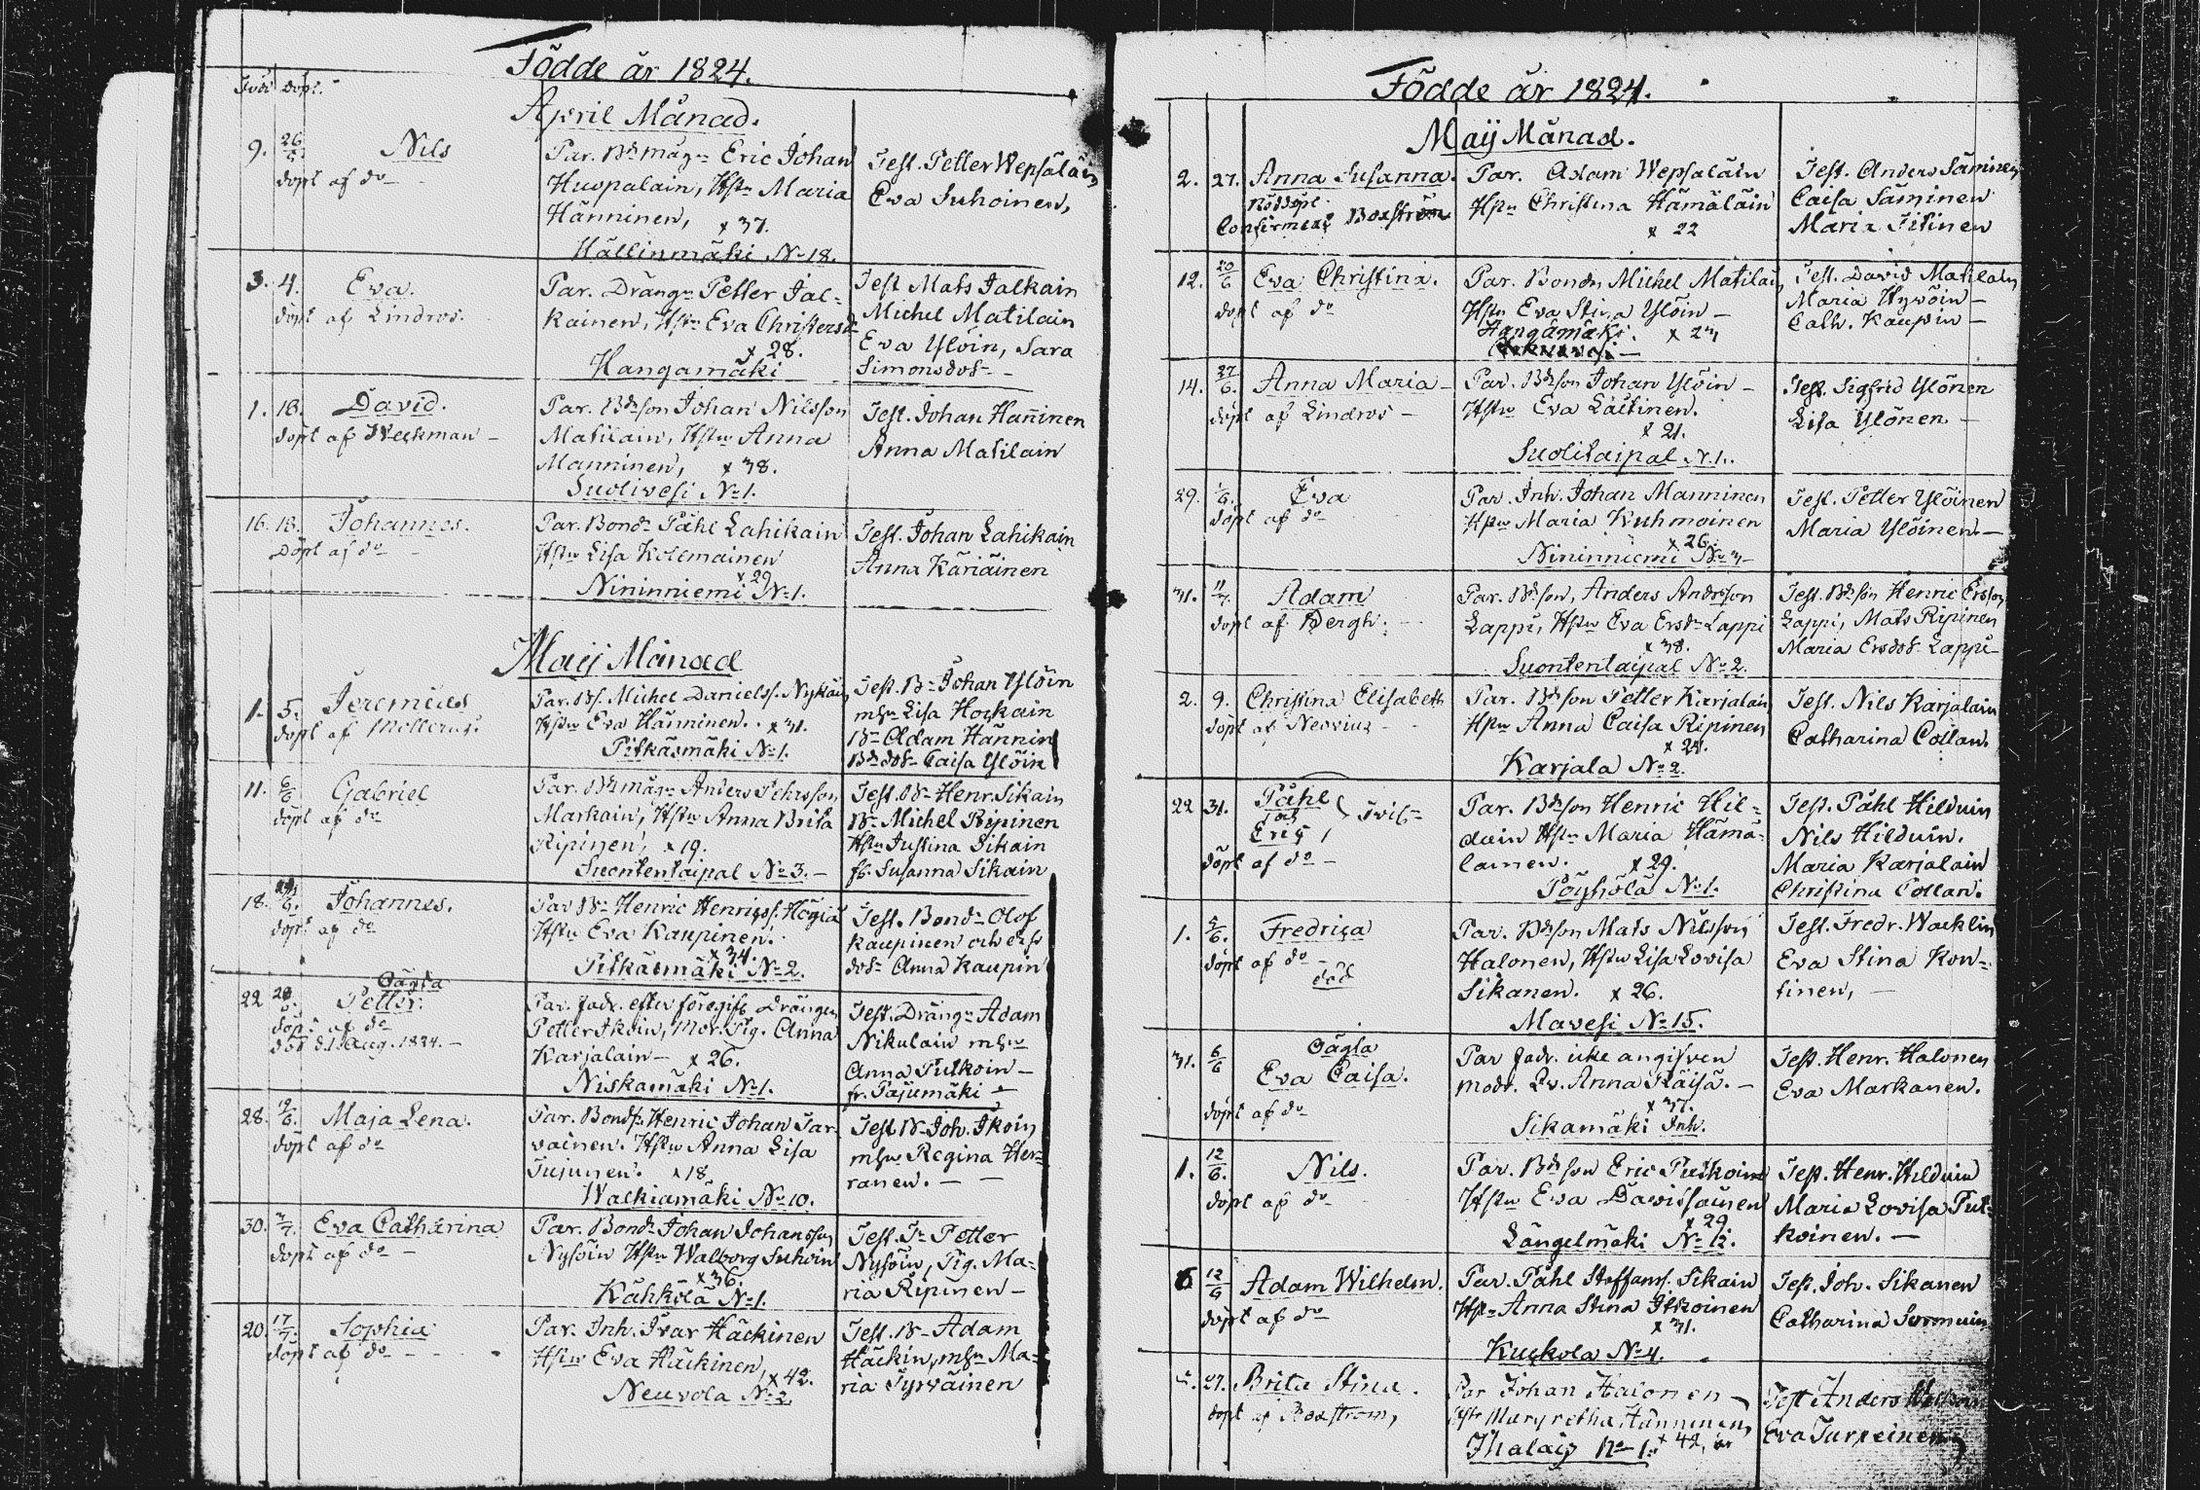 Födde år 1824.
Född döpt.
April Månad.
9. 26/5 Nils
döpt af do
Par. Bdmågn Eric Johan
Huopalain, Hstru Maria
Hänninen, x 37.
Hällinmäki No 18.
Test. Petter Wepsäläin
Eva Juhoinen,
3. 4. Eva.
döpt af Lindros.
Par. Drängn Petter Jal-
kainen, Hstru Eva Christersdr
x 28.
Hangamäki
Test Mats Jalkain
Michel Matilain
Eva Ylöin, Sara
Simonsdotr
1. 18. David.
döpt af Weckman
Par. Bdson Johan Nilsson
Matilain, Hstru Anna
Manninen, x 38.
Suolivesi No 1.
Test. Johan Hanninen
Anna Matilain
16. 18. Johannes.
Döpt af do
Par. Bondn Påhl Lahikain
Hstru Lisa Kolemainen
x 29
Nininniemi No 1.
Test. Johan Lahikain
Anna Käriäinen
Maij Månad
1. 5. Jeremias
döpt af Mollerus.
Par. Bs. Michel Danielss. Nykäin
Hstru Eva Hänninen. x 31.
Pitkäsmäki No 1.
Test. Bn Johan Ylöin
mhu Lisa Hockain
Bn Adam Hännin
Bddotr Caisa Ylöin
11. 6/6 Gabriel
döpt af do
Par. Bdmågn Anders Pehrsson
Markain, Hstru Anna Brita
Ripinen, x 19.
Suontentaipal No 3.
Test. Bn Henr. Sikain
Bn Michel Ripinen
Hstru Justina Sikain
fb. Susanna Sikain
18. Johannes.
döpt af do
Par Bn Henric Henricss. Högiä
Hstru Eva Kaupinen.
x 34.
Pitkäsmäki No 2.
Test. Bondn Olof
Kaupinen och dess
dotr Anna Kaupin
22 Oägta
Petter.
döpt af do
död d. 1 Aug. 1824.
Par. fadr. efter föregift Drängen
Petter Ikoin, Mor. Pig. Anna
Karjalain x 26.
Niskamäki No 1.
Test. Drängn Adam
Nikulain mhu
Anna Putkoin
fr. Pajumäki
28. 12/6 Maja Lena.
döpt af do
Par. Bonds. Henric Johan Tar-
vainen. Hstru Anna Lisa
Jujunen. x 18
Walkiamäki No 10.
Test Bn Joh. Ikoin
mhu Regina Her-
ranen.
30. Eva Catharina
döpt af do
Par. Bondn Johan Johansson
Nysöin Hstru Walborg Juhoin
x 36.
Kähkölä No 1.
Test. Petter
Nysöin, Pig. Ma-
ria Ripinen
20. 17/7 Sophia
döpt af do
Par. Inh. Ivar Häckinen
Hstru Eva Häckinen,
x 42.
Neuvola No 2.
Test. Bn Adam
Häckin, mhu Ma-
ria Tyrväinen
Födde år 1824.
Maij Månad.
2. 27. Anna Susanna.
nöddöpt
Confirmerat Boxström
Par. Adam Wepsäläin
Hstru Christina Hämäläin
x 22
Test. Anders Säminen
Caisa Säminen
Maria Iitinen
12. 20/6 Eva Christina.
döpt af do
Par. Bondn Michel Matilain
Hstru Eva Stina Ylöin
Hangamäki. x 23
Test. David Matilain
Maria Hyvöin
Cath. Kaupin
14. 27/6. Anna Maria
döpt af Lindros
Par. Bdson Johan Ylöin
Hstru Eva Laitinen.
x 21.
Suolitaipal N 1.
Test. Sigfrid Ylönen
Lisa Ylönen.
29. 1/6. Eva
döpt af do
Par. Inh. Johan Manninen
Hstru Maria Kuhmoinen
x 26.
Nininniemi No 3
Test. Petter Ylöinen
Maria Ylöinen.
31. 11/7. Adam
döpt af Bergh.
Par. Bdson, Anders Andersson
Lappi, Hstru Eva Ersdr Lappi
x 38.
Suontentaipal No 2.
Test. Bdson Henric Ersson
Lappi, Mats Ripinen
Maria Ersdotr Lappi
2. 9. Christina Elisabeth
döpt af Neovius
Par. Bdson Petter Karjalain
Hstru Anna Caisa Ripinen
x 24.
Karjala No 2.
Test. Nils Karjalain
Catharina Collan.
22 31. Påhl
och
Eric
Tvil.
döpt af do
Par. Bdson Henric Hil-
duin Hstru Maria Hämä-
lainen. x 29.
Pöyhölä No 1.
Test. Påhl Hilduin
Nils Hilduin.
Maria Karjalain
Christina Collan.
1. 5/6. Fredrica
döpt af do
död
Par. Bdson Mats Nilsson
Halonen, Hstru Lisa Lovisa
Sikanen. x 26.
Mavesi No 15.
Test. Fredr. Wacklin
Eva Stina Kon-
tinen,
31. 6/6 Oägta
Eva Caisa.
döpt af do
Par fadr. icke angifven
modr. Anna Räisä.
x 37.
Sikamäki Inh.
Test. Henr. Halonen
Eva Markanen.
1. 12/6. Nils.
döpt af do
Par. Bdson Eric Putkoinen
Hstru Eva Davidsainen
x 29.
Längelmäki No 12.
Test. Henr. Hilduin
Maria Lovisa Put-
koinen.
6 12/9 Adam Wilhelm.
döpt af do
Par. Påhl Staffanss. Sikain
Hstru Anna Stina Itkoinen
x 31.
Kuckola No 4.
Test. Joh. Sikanen
Catharina Sormuin
27. Brita Stina.
döpt af Boxström,
Par Johan Halonen
Hstr Margretha Hänninen,
Ihalais No 1. x 42, år
Test Anders
Eva Turpeinen,